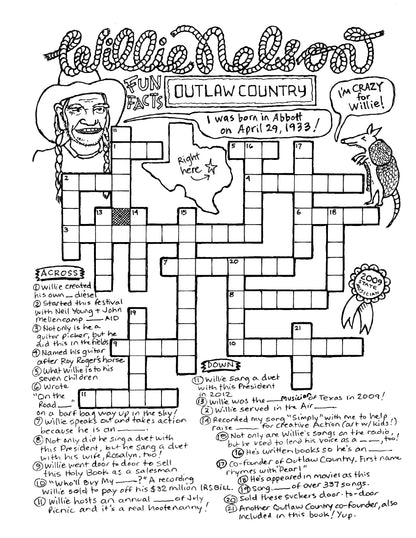 Willie Nelson
FUN
FACTS
OUTLAW COUNTRY
I was born in Abbott
on April 29, 1933!
I'm CRAZY
for
Willie!
Right
here
2009
STATE
MUSICIAN
ACROSS
① Willie created
his own __ diesel
② Started this festival
with Neil Young + John
Mellencamp ___ AID
③ Not only is he a
guitar picker, but he
did this in the fields
④ Named his guitar
after Roy Rogers horse
⑤ What Willie is to his
seven children
⑥ Wrote
"On the
Road ____
on a barf bag way up in the sky!
⑦ Willie speaks out and takes action
because he is an ______
⑧ Not only did he sing a duet with
this President, but he sang a duet
with his wife, Rosalyn, too!
⑨ Willie went door to door to sell
this Holy Book as a salesman
⑩ "Who'll Buy My ____?" A recording
Willie sold to pay off his $32 million IRS Bill.
⑪ Willie hosts an annual ____ of July
Picnic and it's a real hootenanny!
DOWN
⑪ Willie sang a duet
with this President
in 2012
Willie was the ____ Musician of Texas in 2009!
② Willie served in the Air ____
⑭ Recorded my song "Simply" with me to help
raise ____ for Creative Action (art w/ kids!)
⑮ Not only are Willie's songs on the radio,
but he used to lend his voice as a ____, too!
⑯ He's written books so he's an ____
⑰ Co-founder of Outlaw Country. First name
rhymes with "Pearl"
⑱ He's appeared in movies as this
⑲ Song____ of over 337 songs.
⑳ Sold these suckers door-to-door
㉑ Another Outlaw Country co-founder, also
included in this book! Yup.